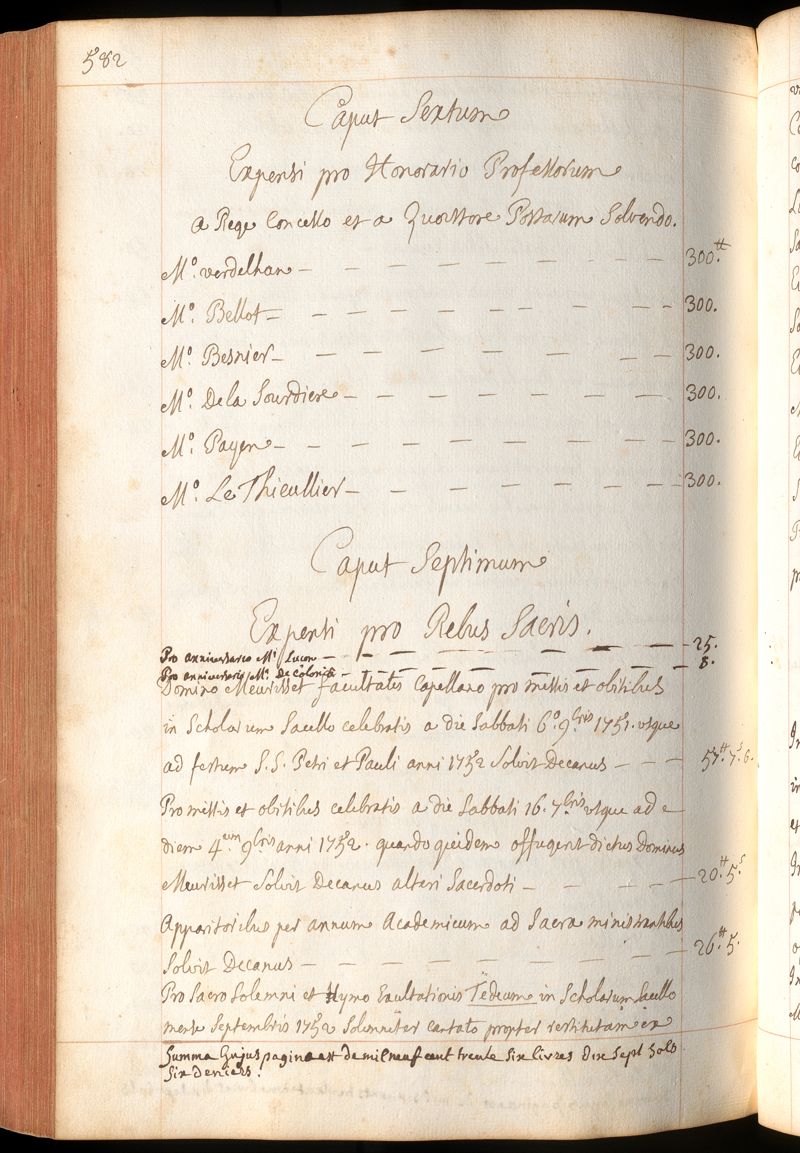 582
Caput Sextum
Expensi pro Honorario Professorum
a Rege Concesso et a Quæstore Postarum Solvendo.
M.º verdelhan — 300.tt
M.º Bellot — 300.
M.º Besnier — 300.
M.º De la Sourdiere — 300.
M.º Payen — 300.
M.º Le Thieullier — 300.
Caput Septimum
Expensi pro Rebus Sacris.
Pro anniversario M.i Lucon — 25.
Pro anniversario M.i De Colonia — 8.
Domino Meurisset facultatis Capellano pro missis et obitibus
in Scholarum Sacello celebratis a die Sabbati 6.º 9.bris 1751. usque
ad festum S.S. Petri et Pauli anni 1752 Solvit Decanus — 57.tt 7.s 6.
Pro missis et obitibus celebratis a die Sabbati 16. 7.bris usque ad
diem 4.eum 9.bris anni 1752. quando quidem offugerit dictus Dominus
Meurisset Solvit Decanus alteri Sacerdoti — 20.tt 5.s
Apparitoribus per annum Academicum ad Sacra ministrantibus
Solvit Decanus — 26.tt 5.
Pro Sacro Solemni et Hymno Exultationis Tëdeum in Scholarum Sacello
mense Septembris 1752 Solemniter cantato propter restitutam ex
Summa hujus paginae est de mil neuf cent trente six livres dix sept sols
six deniers.